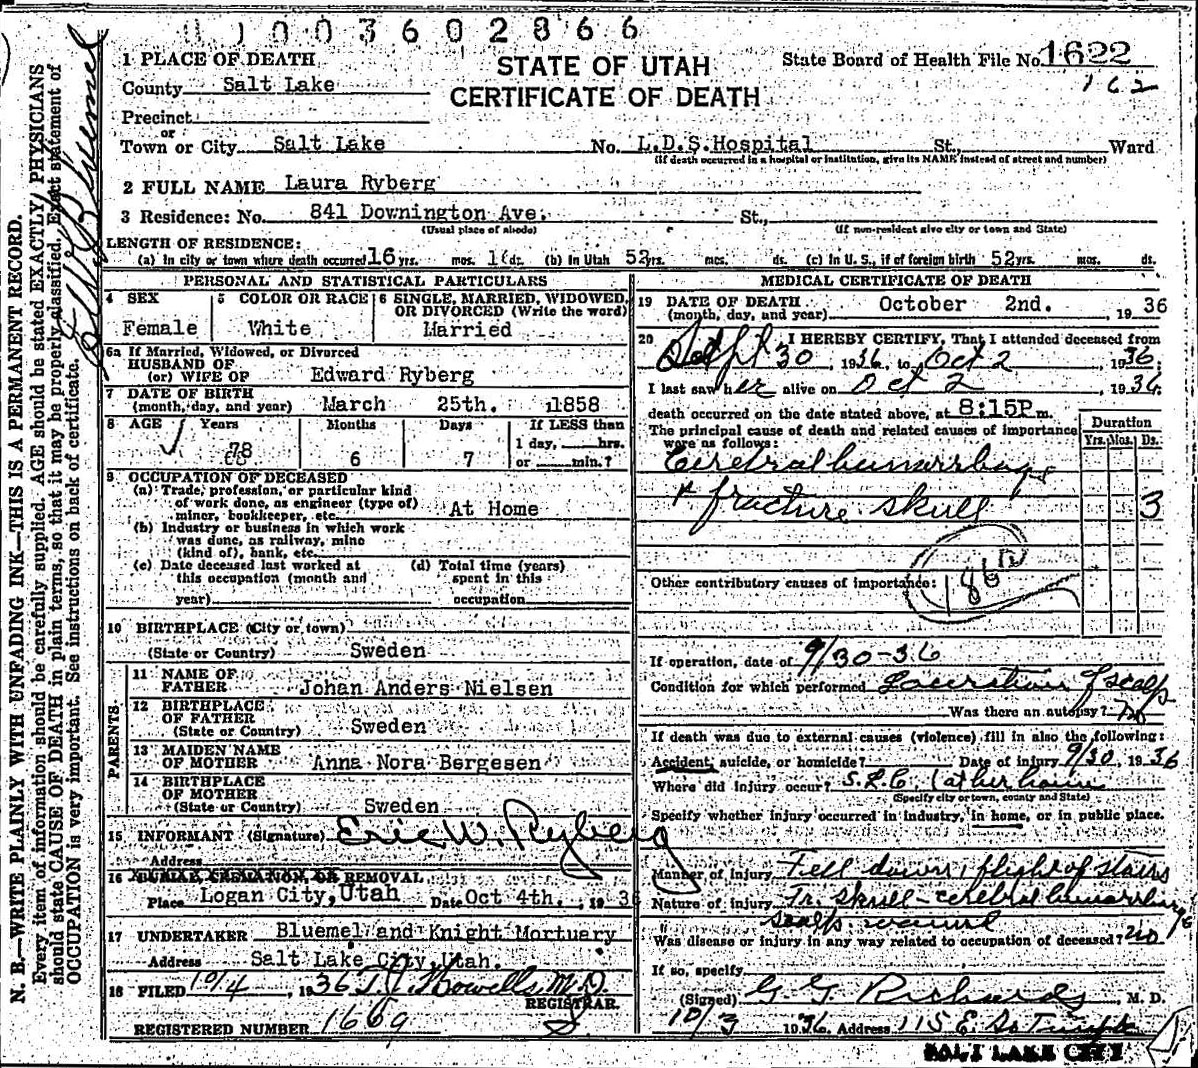 01003602866
1 PLACE OF DEATH
STATE OF UTAH
State Board of Health File No. 1622
County Salt Lake
CERTIFICATE OF DEATH
162
Precinct
or
Town or City Salt Lake No. L.D.S. Hospital St., Ward
(If death occurred in a hospital or institution, give its NAME instead of street and number)
2 FULL NAME Laura Ryberg
3 Residence: No. 841 Downington Ave. St.,
(Usual place of abode) (If non-resident give city or town and State)
LENGTH OF RESIDENCE:
(a) In city or town where death occurred 16 yrs. mos. ds. (b) In Utah 52 yrs. mos. ds. (c) In U. S., if of foreign birth 52 yrs. mos. ds.
PERSONAL AND STATISTICAL PARTICULARS
4 SEX Female
5 COLOR OR RACE White
6 SINGLE, MARRIED, WIDOWED, OR DIVORCED (Write the word)
Married
6a If Married, Widowed, or Divorced
HUSBAND OF
(or) WIFE OF Edward Ryberg
7 DATE OF BIRTH
(month, day, and year) March 25th. 1858
8 AGE Years Months Days If LESS than
1 day, hrs.
78 6 7 or min.?
9 OCCUPATION OF DECEASED
(a) Trade, profession, or particular kind
of work done, as engineer (type of)
miner, bookkeeper, etc. At Home
(b) Industry or business in which work
was done, as railway, mine
(kind of), bank, etc.
(c) Date deceased last worked at
this occupation (month and
year)
(d) Total time (years)
spent in this
occupation
10 BIRTHPLACE (City or town)
(State or Country) Sweden
PARENTS
11 NAME OF
FATHER Johan Anders Nielsen
12 BIRTHPLACE
OF FATHER
(State or Country) Sweden
13 MAIDEN NAME
OF MOTHER Anna Nora Bergesen
14 BIRTHPLACE
OF MOTHER
(State or Country) Sweden
15 INFORMANT (Signature) Eric W. Ryberg
Address
16 BURIAL CREMATION OR REMOVAL
Place Logan City, Utah Date Oct 4th. , 1936
17 UNDERTAKER Bluemel and Knight Mortuary
Address Salt Lake City, Utah.
18 FILED 10/4 , 1936 Howells M.D.
REGISTRAR
REGISTERED NUMBER 1669
MEDICAL CERTIFICATE OF DEATH
19 DATE OF DEATH
(month, day, and year) October 2nd. , 1936
20 I HEREBY CERTIFY, That I attended deceased from
Sept 30 1936, to Oct 2 , 1936.
I last saw her alive on Oct 2 , 1936.
death occurred on the date stated above, at 8:15P m.
The principal cause of death and related causes of importance
were as follows:
Duration
Yrs. Mos. Ds.
Cerebral hemorrhage
& fracture skull 3
Other contributory causes of importance:
186
If operation, date of 9/30-36
Condition for which performed Laceration of scalp
Was there an autopsy? no
If death was due to external causes (violence) fill in also the following:
Accident, suicide, or homicide? Date of injury 9/30 1936
Where did injury occur? S.L.C. (at her home
(Specify city or town, county and State)
Specify whether injury occurred in industry, in home, or in public place.
Manner of Injury Fell down flight of stairs
Nature of injury Fr. skull - cerebral hemorrhage
scalp wound
Was disease or injury in any way related to occupation of deceased? no
If so, specify
(Signed) G G Richards , M. D.
10/3 1936 Address 115 E. So Temple
SALT LAKE CITY
N. B.—WRITE PLAINLY WITH UNFADING INK—THIS IS A PERMANENT RECORD.
Every item of information should be carefully supplied. AGE should be stated EXACTLY. PHYSICIANS
should state CAUSE OF DEATH in plain terms, so that it may be properly classified. Exact statement of
OCCUPATION is very important. See instructions on back of certificate.
Bluemel